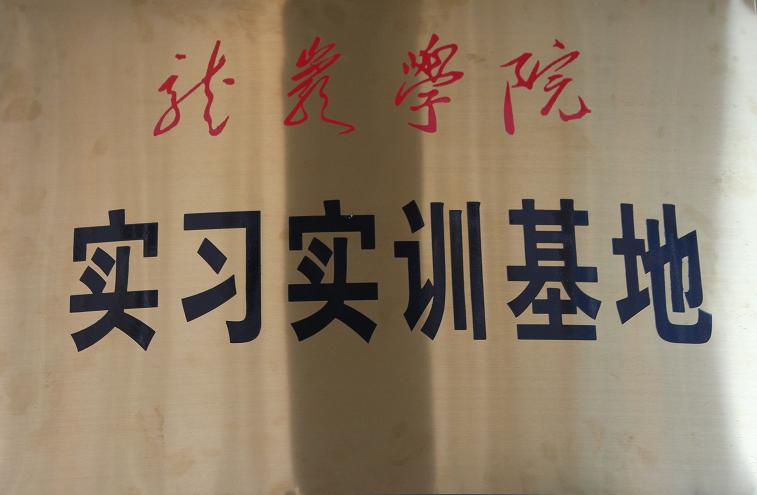 龙岩学院
实习实训基地